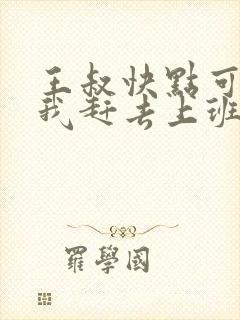 王叔快點可
我赶去上班
羅學國